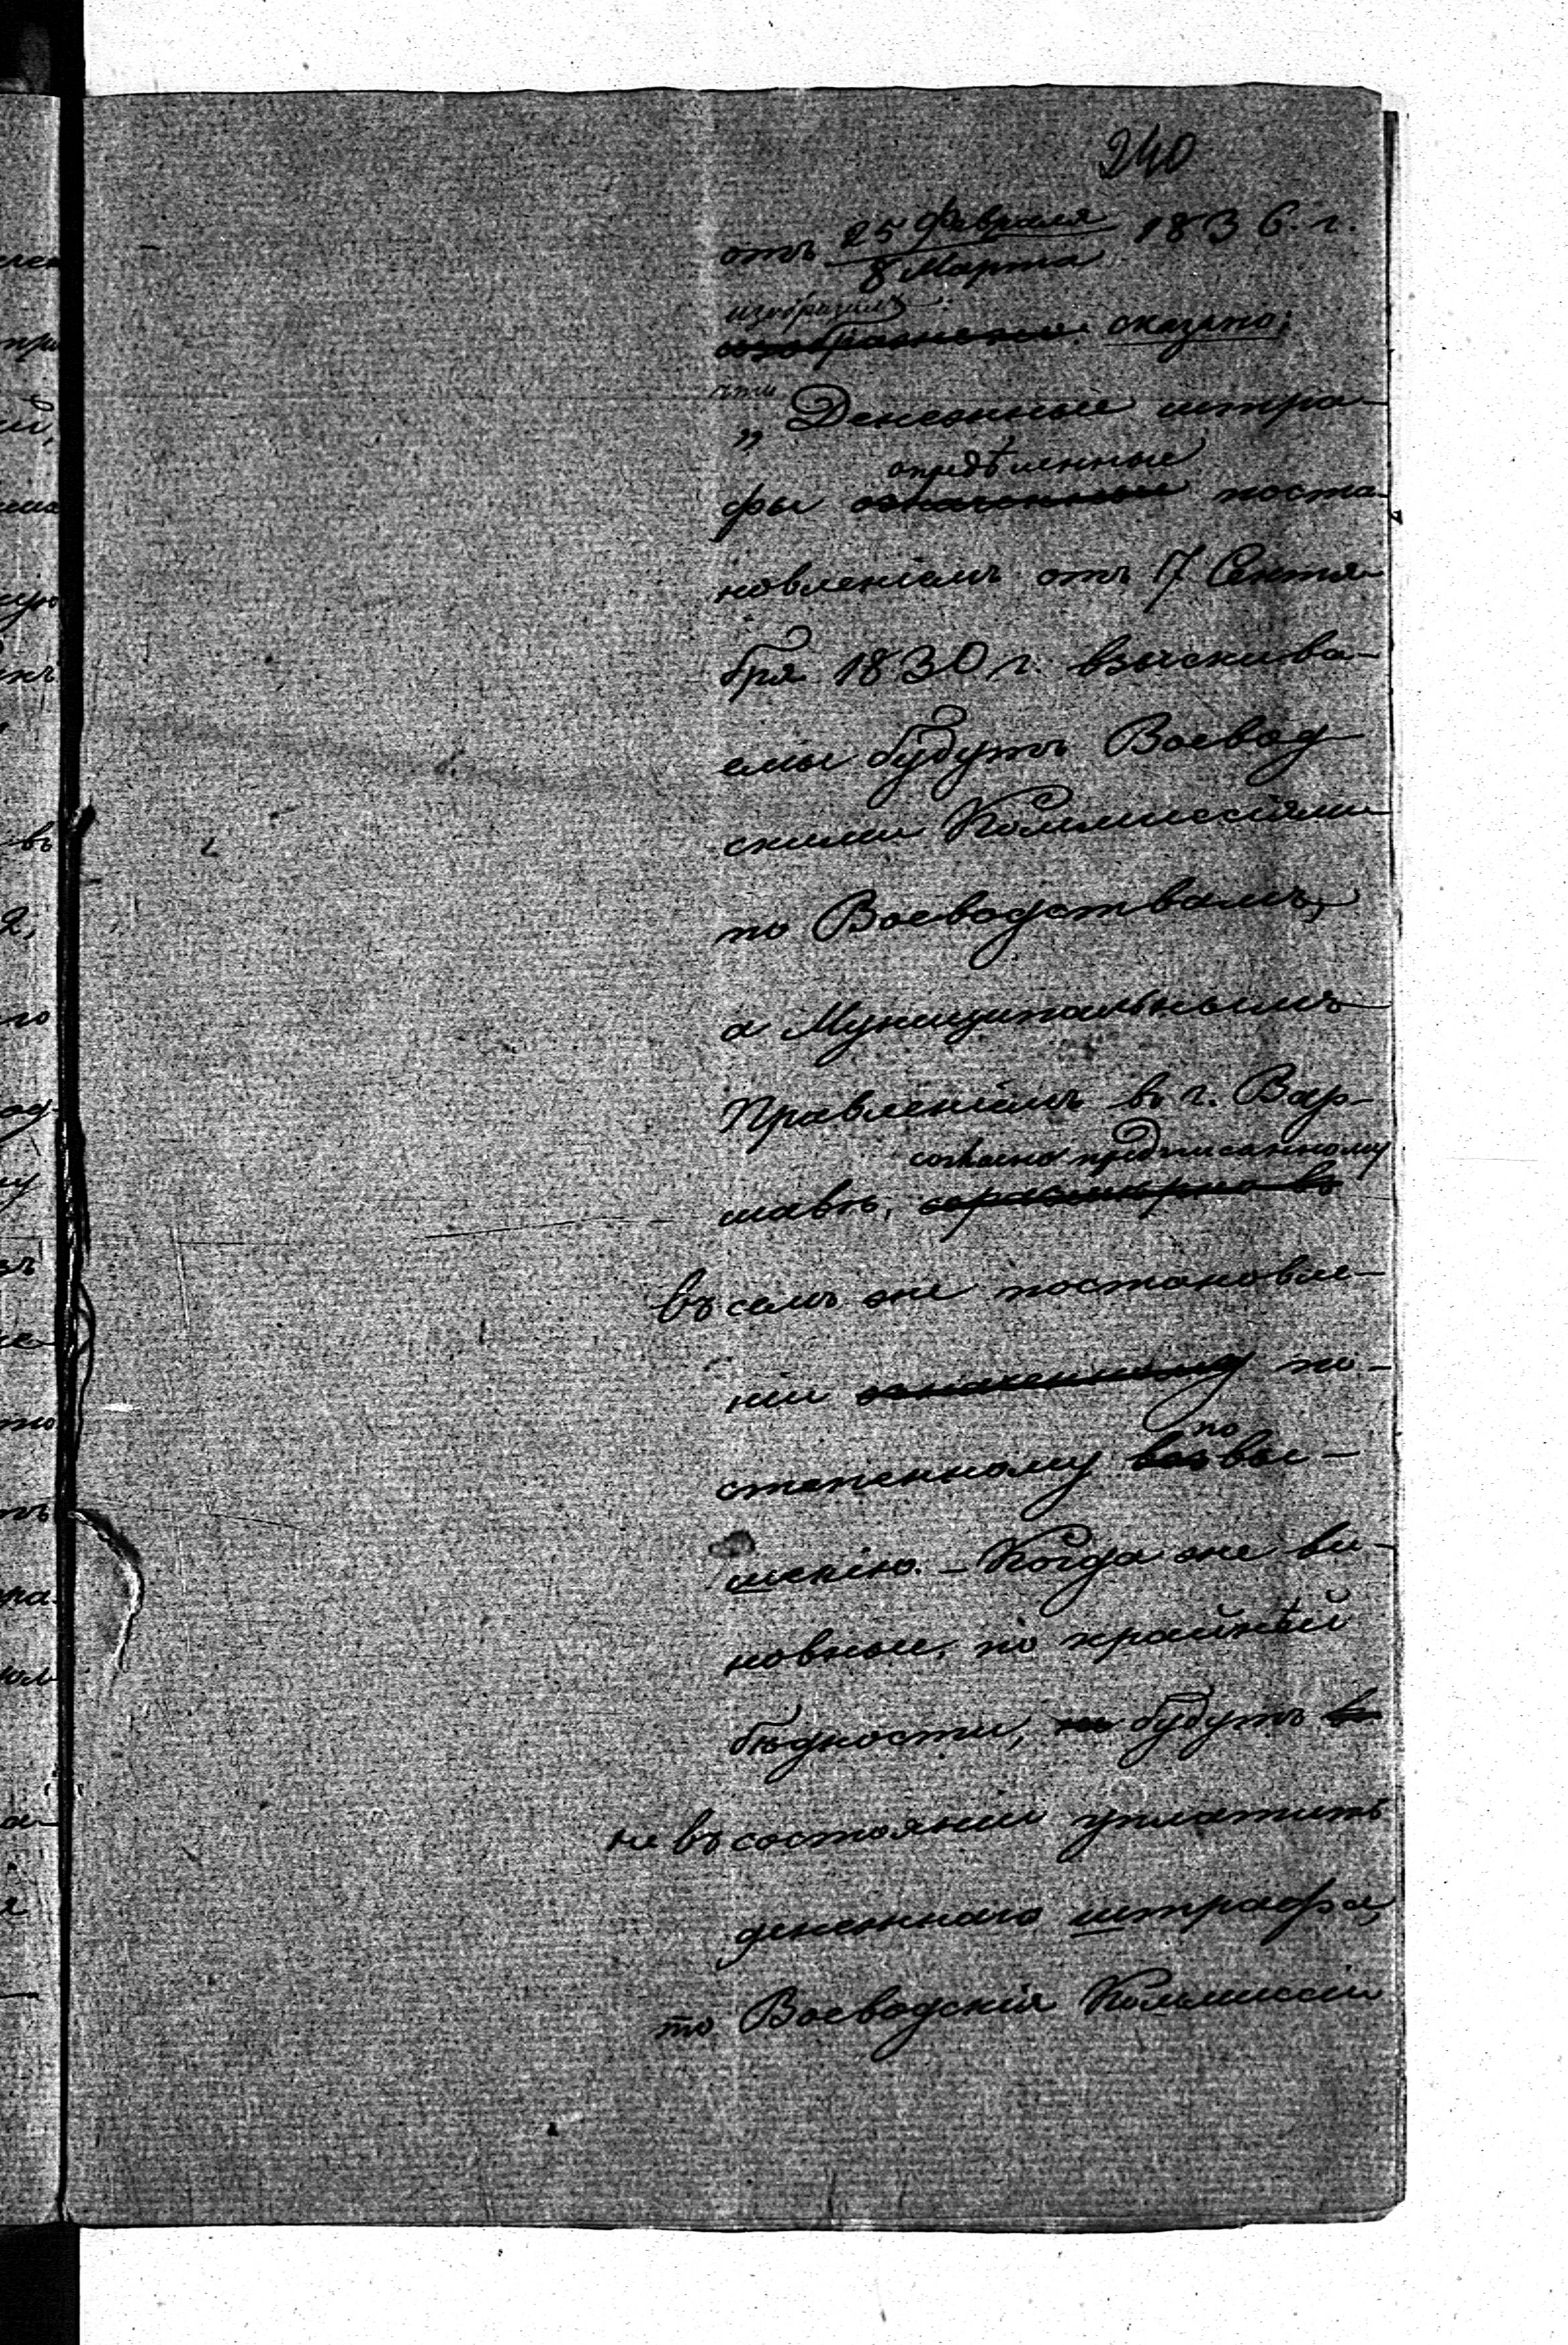 240
отъ 25 Февраля 1836. г.
8 Марта
изображено
сказано:
что
„Денежные штра-
опредѣленные
фы означенные поста-
новленіемъ отъ 17 Сентя-
бря 1830 г. взыскива-
емы будутъ Воевод-
скими Коммиссіями
по Воеводствамъ,
а Муниципальнымъ
Правленіемъ въ г. Вар-
согласно предписанному
шавѣ,
въ семъ же постановле-
ніи означенному по-
по
степенному возвы-
шенію. – Когда же ви-
новные, по крайнѣй
бѣдности, не будутъ въ
не въ состояніи уплатить
денежнаго штрафа,
то Воеводскія Коммиссіи